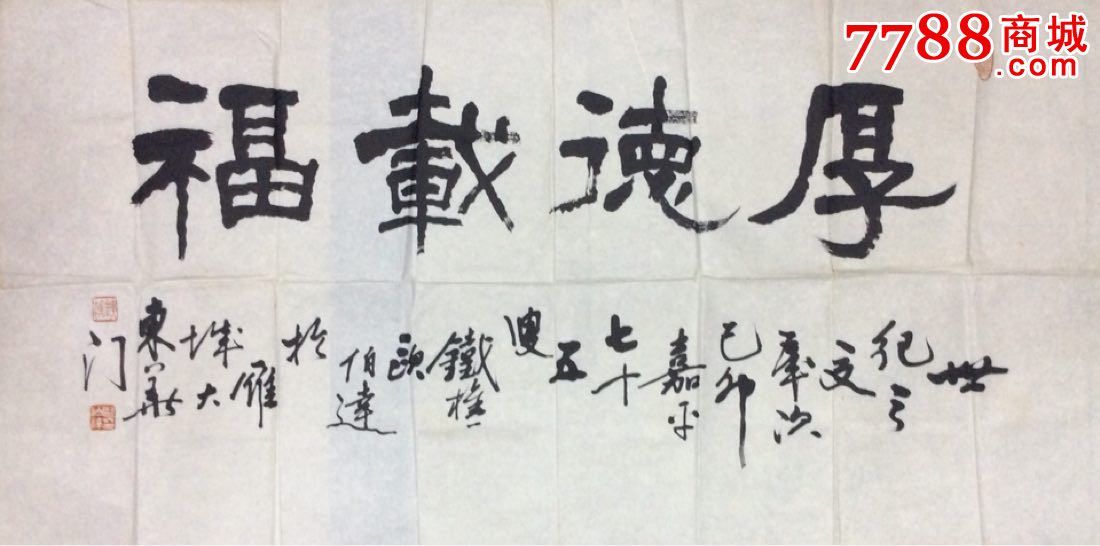 7788商城
.com
厚徳載福
世
纪之
交
歲次
己卯
嘉平
七十
五
叟
鐵
歐
伯達
於
雁
城大
東華
门